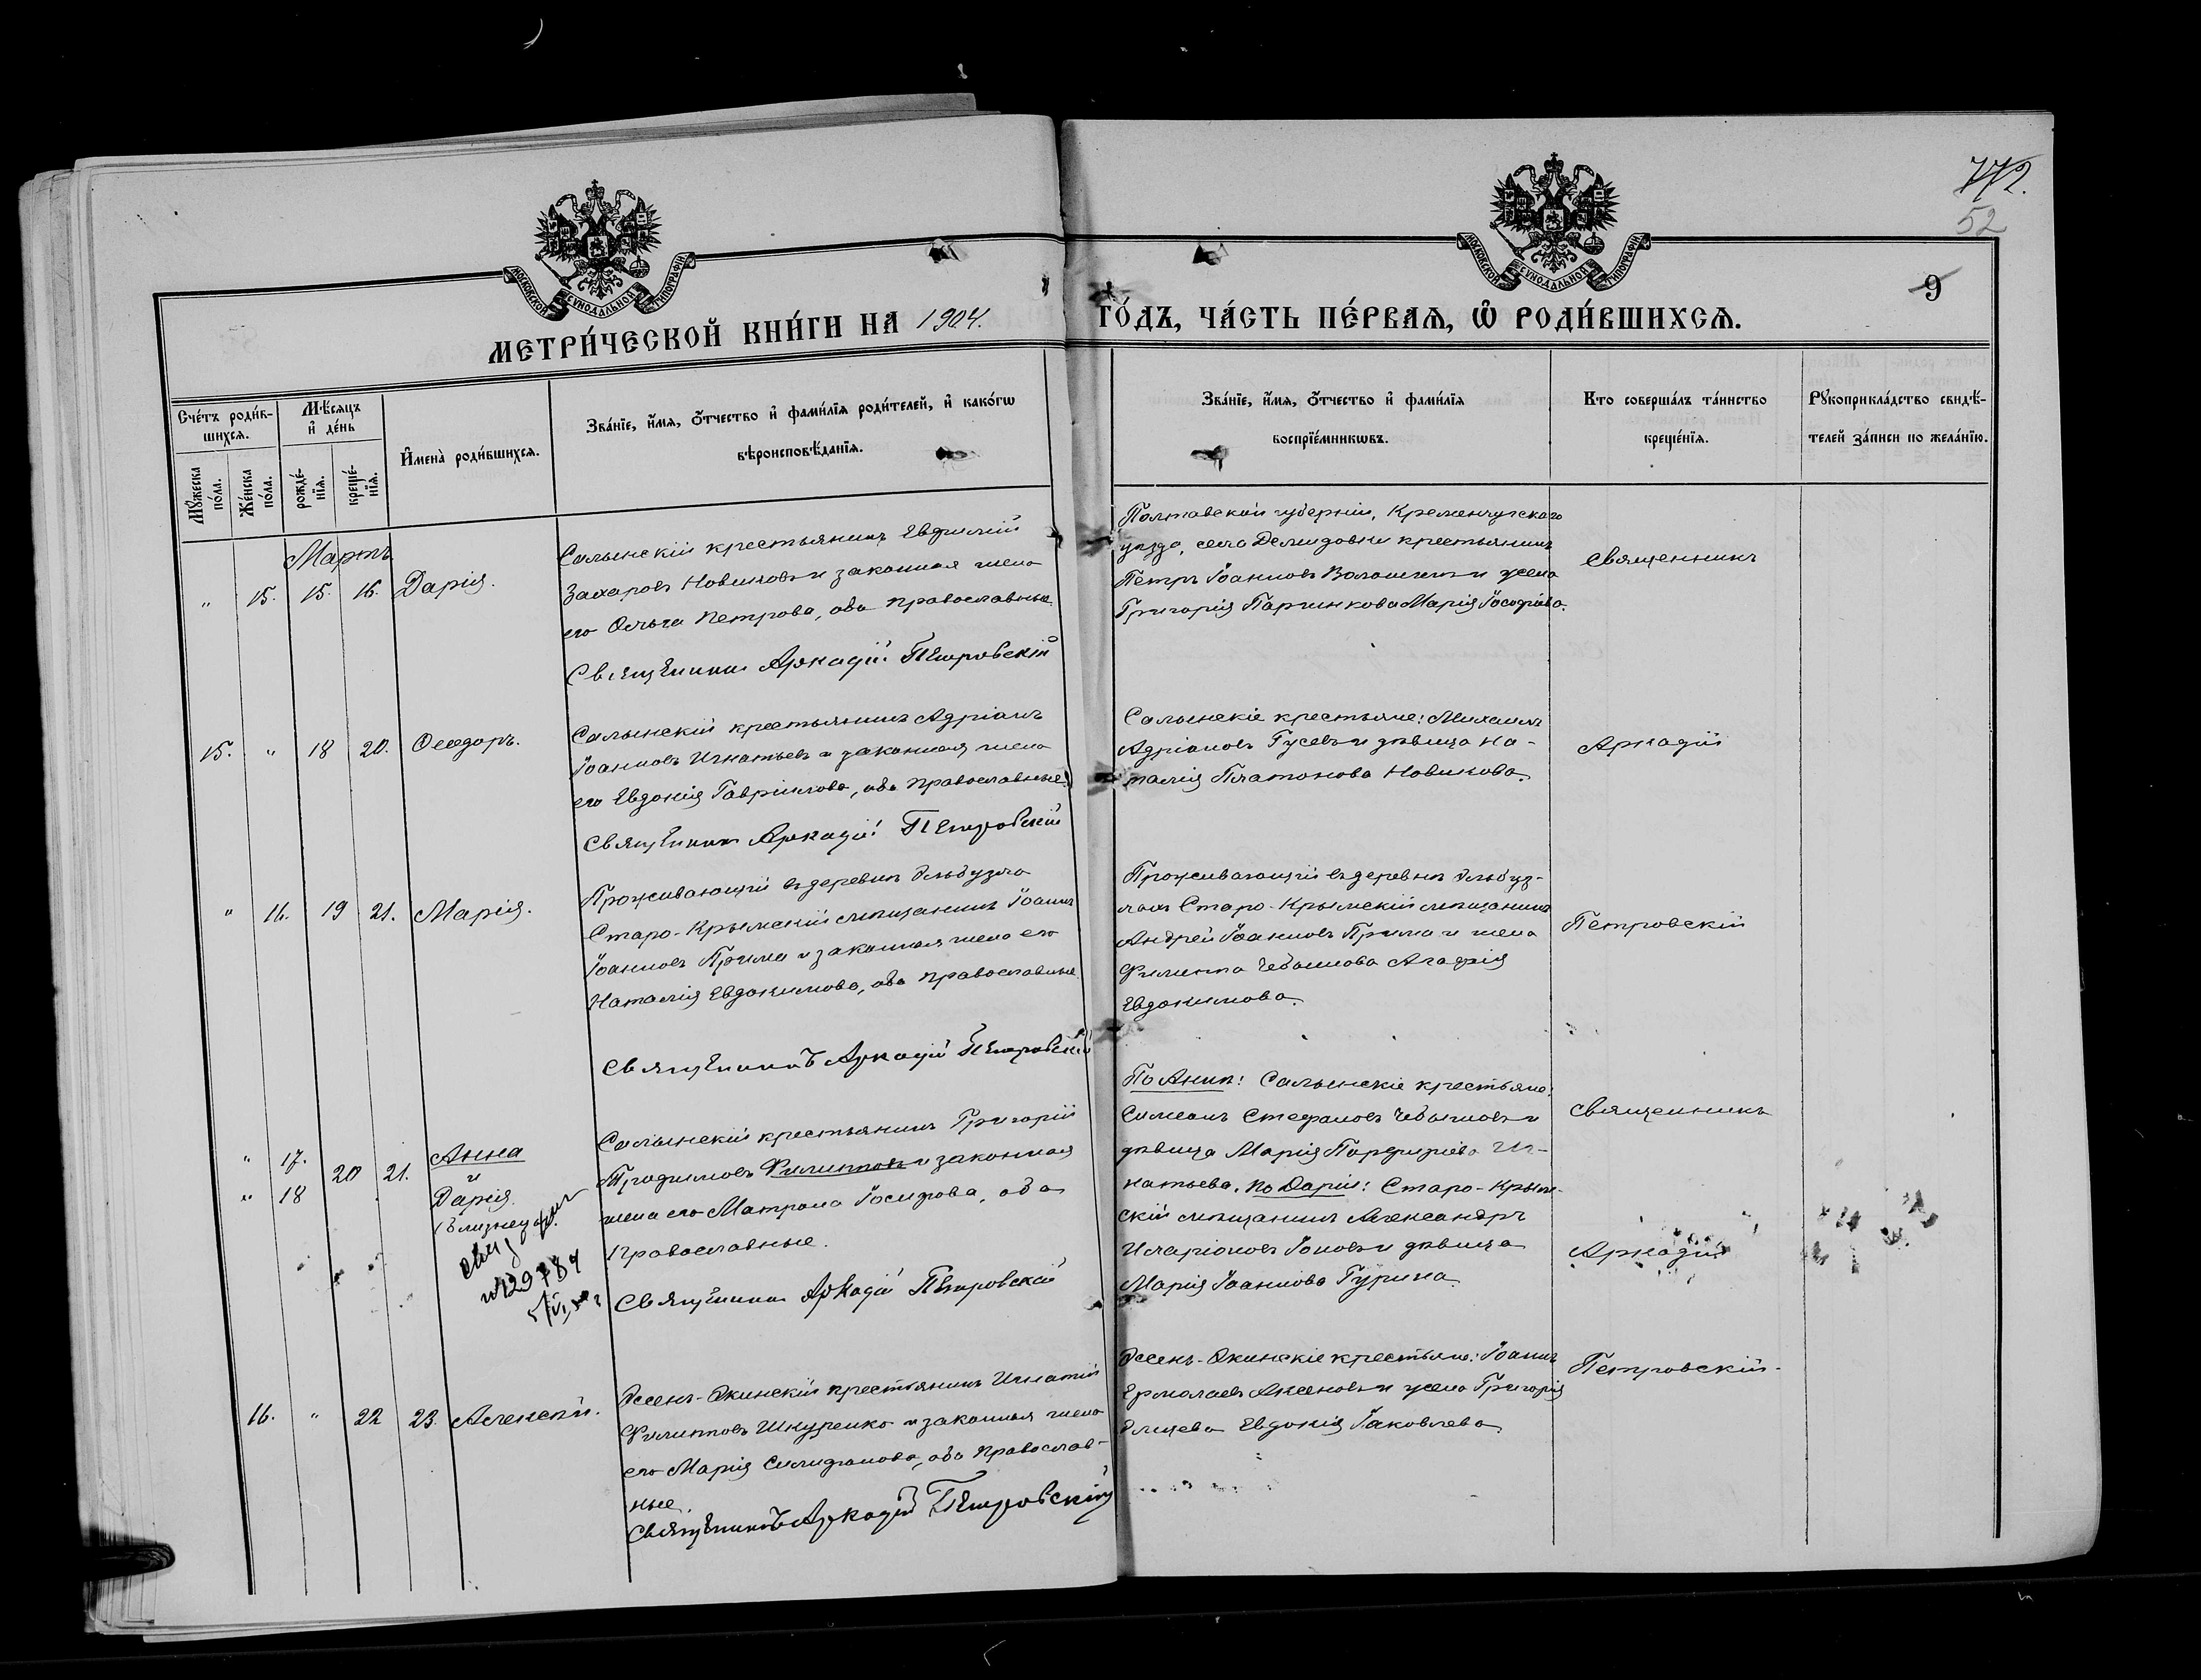 772.
52
9
МОСКОВСКОЙ СѴНОДАЛЬНОЙ ТИПОГРАФІИ
МОСКОВСКОЙ СѴНОДАЛЬНОЙ ТИПОГРАФІИ
МЕТРИ́ЧЕСКОЙ КНИ́ГИ НА 1904.
ГО́ДЪ, ЧА́СТЬ ПЕ́РВАѦ, Ѡ҃ РОДИ́ВШИХСѦ.
Сче́тъ роди́в-
шихсѧ.
Мꙋжеска по́ла.
Же́нска по́ла.
Мѣ́сѧцъ
и҆ де́нь
рожде́-
нїѧ.
креще́-
нїѧ.
И҆мена̀ роди́вшихсѧ.
Зва́нїе, и҆́мѧ, ѻ҆́тчество и҆ фами́лїѧ роди́телей, и҆ како́гѡ
вѣроисповѣ́данїѧ.
Зва́нїе, и҆́мѧ, ѻ҆́тчество и҆ фами́лїѧ
воспрїе́мникѡвъ.
Кто соверша́лъ та́инство
креще́нїѧ.
Рꙋкоприкла́дство свидѣ́-
телей за́писи по жела́нїю.
Мартъ
" 15. 15. 16. Дарія.
Салынскій крестьянинъ Евфимій
Захаровъ Новиковъ и законная жена
его Ольга Петрова, оба православные.
Священникъ Аркадій Петровскій
Полтавской губерніи, Кременчугскаго
уѣзда, села Демидовки крестьянинъ
Петръ Іоанновъ Волошинъ и жена
Григорія Паринкова Марія Іосифова.
Священникъ
15. " 18 20. Ѳеодоръ.
Салынскій крестьянинъ Адріанъ
Іоанновъ Игнатьевъ и законная жена
его Евдокія Гавріилова, оба православные.
Священникъ Аркадій Петровскій
Салынскіе крестьяне: Михаилъ
Адріановъ Гусевъ и дѣвица На-
талія Платонова Новикова.
Аркадій
" 16. 19 21. Марія.
Проживающій въ деревнѣ Эльбузла
Старо-Крымскій мѣщанинъ Іоаннъ
Іоанновъ Прима и законная жена его
Наталія Евдокимова, оба православные.
Священникъ Аркадій Петровскій
Проживающій въ деревнѣ Эльбуз-
Старо-Крымскій мѣщанинъ
Андрей Іоанновъ Прима и жена
Филиппа Чебышова Агафія
Евдокимова.
Петровскій
" 17. 20 21. Анна
и
" 18 Дарія.
(близнецы).
№ 129784
Салынскій крестьянинъ Григорій
Трофимовъ Филиппов и законная
жена его Матрона Іосифова, оба
православные.
Священникъ Аркадій Петровскій
По Аннѣ: Салынскіе крестьяне:
Симеонъ Стефановъ Чебышовъ и
дѣвица Марія Порфиріева Иг-
натьева. По Даріи: Старо-Крым-
скій мѣщанинъ Александръ
Иларіоновъ Іоновъ и дѣвица
Марія Іоаннова Гурина.
Священникъ
Аркадій
16. " 22 23. Алексѣй.
Эссенъ-Экинскій крестьянинъ Игнатій
Филипповъ Шкуренко и законная жена
его Марія Селифанова, оба православ-
ные.
Священникъ Аркадій Петровскій
Эссенъ-Экинскіе крестьяне: Іоаннъ
Ермолаевъ Аксеновъ и жена Григорія
Евдокія Іаковлева
Петровскій.